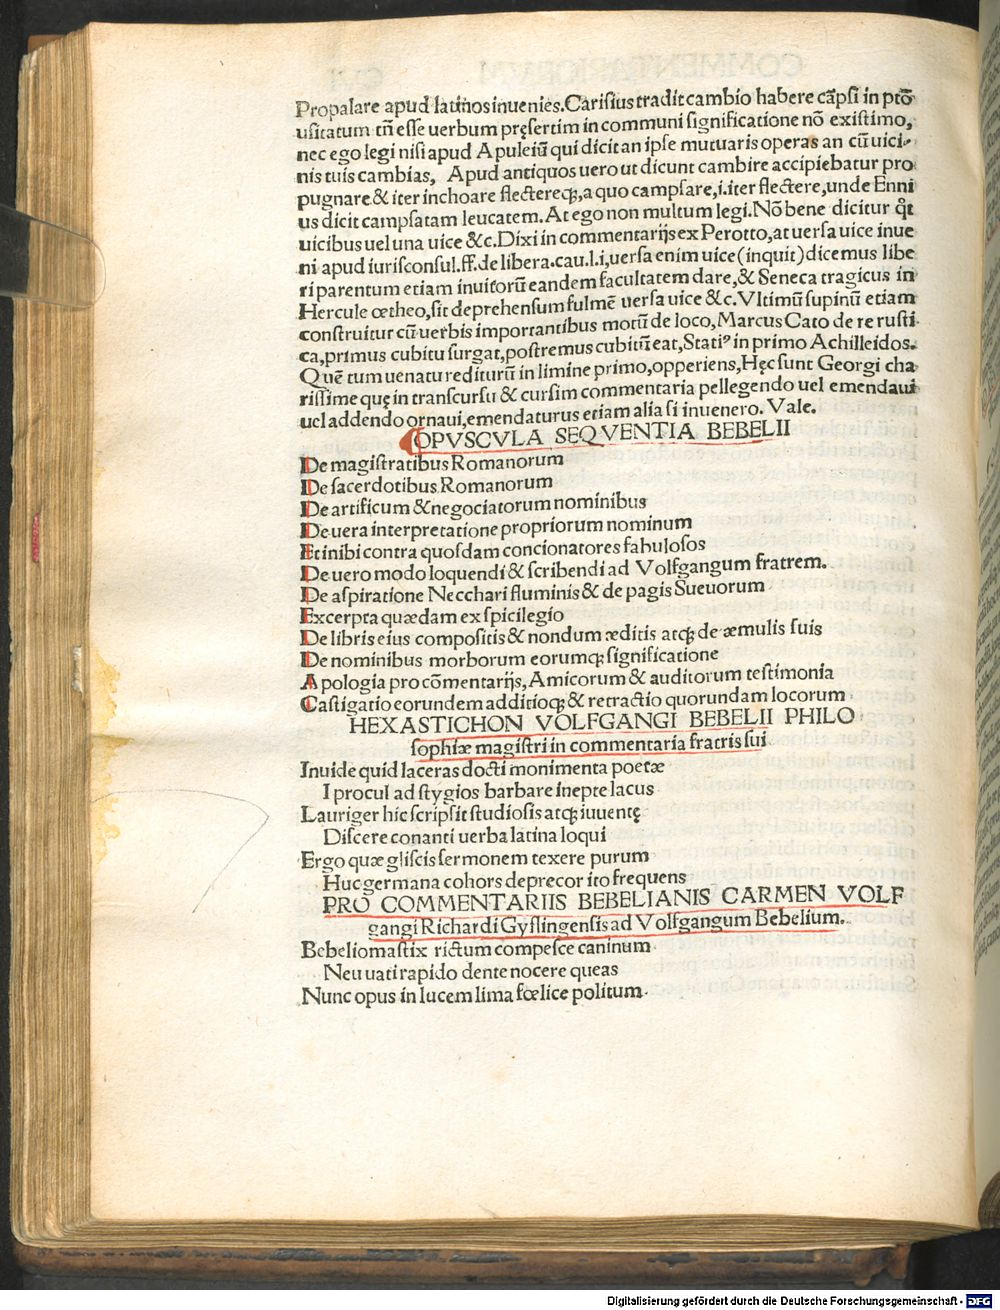 Propalare apud latinos inuenies. Carisius tradit cambio habere cāpsi in ptō
usitatum tn̄ esse uerbum pręsertim in communi significatione nō existimo,
nec ego legi nisi apud Apuleiū qui dicit an ipse mutuaris operas an cū uici-
nis tuis cambias, Apud antiquos uero ut dicunt cambire accipiebatur pro
pugnare & iter inchoare flectereq;, a quo campsare, i. iter flectere, unde Enni
us dicit campsatam leucatem. At ego non multum legi. Nō bene dicitur qt
uicibus uel una uice &c. Dixi in commentarijs ex Perotto, at uersa uice inue
ni apud iurisconsul. ff. de libera. cau. l. i, uersa enim uice (inquit) dicemus libe
ri parentum etiam inuitorū eandem facultatem dare, & Seneca tragicus in
Hercule œtheo, sit deprehensum fulmē uersa uice &c. Vltimū supinū etiam
construitur cū uerbis importantibus motū de loco, Marcus Cato de re rusti
ca, primus cubitu surgat, postremus cubitū eat, Statiꝰ in primo Achilleidos.
Quē tum uenatu rediturū in limine primo, opperiens, Hęc sunt Georgi cha
rissime quę in transcursu & cursim commentaria pellegendo uel emendaui
uel addendo ornaui, emendaturus etiam alia si inuenero. Vale.
OPVSCVLA SEQVENTIA BEBELII
De magistratibus Romanorum
De sacerdotibus Romanorum
De artificum & negociatorum nominibus
De uera interpretatione propriorum nominum
Et inibi contra quosdam concionatores fabulosos
De uero modo loquendi & scribendi ad Volfgangum fratrem.
De aspiratione Necchari fluminis & de pagis Sueuorum
Excerpta quædam ex spicilegio
De libris eius compositis & nondum æditis atq; de æmulis suis
De nominibus morborum eorumq; significatione
Apologia pro cōmentarijs, Amicorum & auditorum testimonia
Castigatio eorundem additioq; & retractio quorundam locorum
HEXASTICHON VOLFGANGI BEBELII PHILO
sophiæ magistri in commentaria fratris sui
Inuide quid laceras docti monimenta poetæ
I procul ad stygios barbare inepte lacus
Lauriger hic scripsit studiosis atq; iuuentę
Discere conanti uerba latina loqui
Ergo quæ gliscis sermonem texere purum
Huc germana cohors deprecor ito frequens
PRO COMMENTARIIS BEBELIANIS CARMEN VOLF
gangi Richardi Gyslingensis ad Volfgangum Bebelium.
Bebeliomastix rictum compesce caninum
Neu uati rapido dente nocere queas
Nunc opus in lucem lima fœlice politum
Digitalisierung gefördert durch die Deutsche Forschungsgemeinschaft - DFG